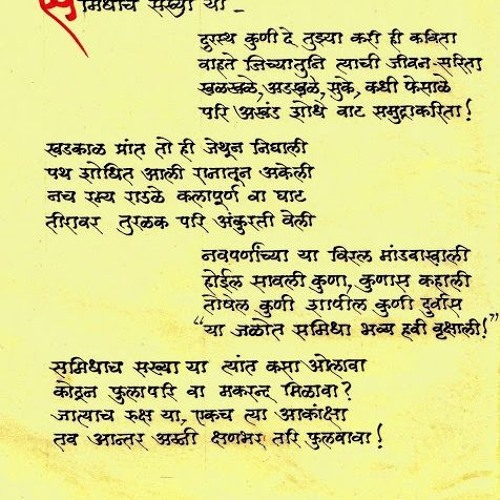 समिधाच सख्या या -
दूरस्थ कुणी दे तुझ्या करी ही कविता
वाहते जिच्यातुनि त्याची जीवन-सरिता
खळखळे, अडखळे, सुके, कधी फेसाळे
परि अखंड शोधे वाट समुद्राकरिता!
खडकाळ प्रांत तो ही जेथून निघाली
पथ शोधित आली रानातून अकेली
नच रम्य राउळे कलापूर्ण वा घाट
तीरावर तुरळक परि अंकुरती वेली
नवपर्णाच्या या विरल मांडवाखाली
होईल सावली कुणा, कुणास कहाली
तोषेल कुणी शापील कुणी दुर्वास
“या जळोत समिधा भव्य हवी वृक्षाली!”
समिधाच सख्या या त्यांत कसा ओलावा
कोठून फुलापरि वा मकरन्द मिळावा?
जात्याच रुक्ष या, एकच त्या आकांक्षा
तव आन्तर अग्नी क्षणभर तरि फुलवावा!